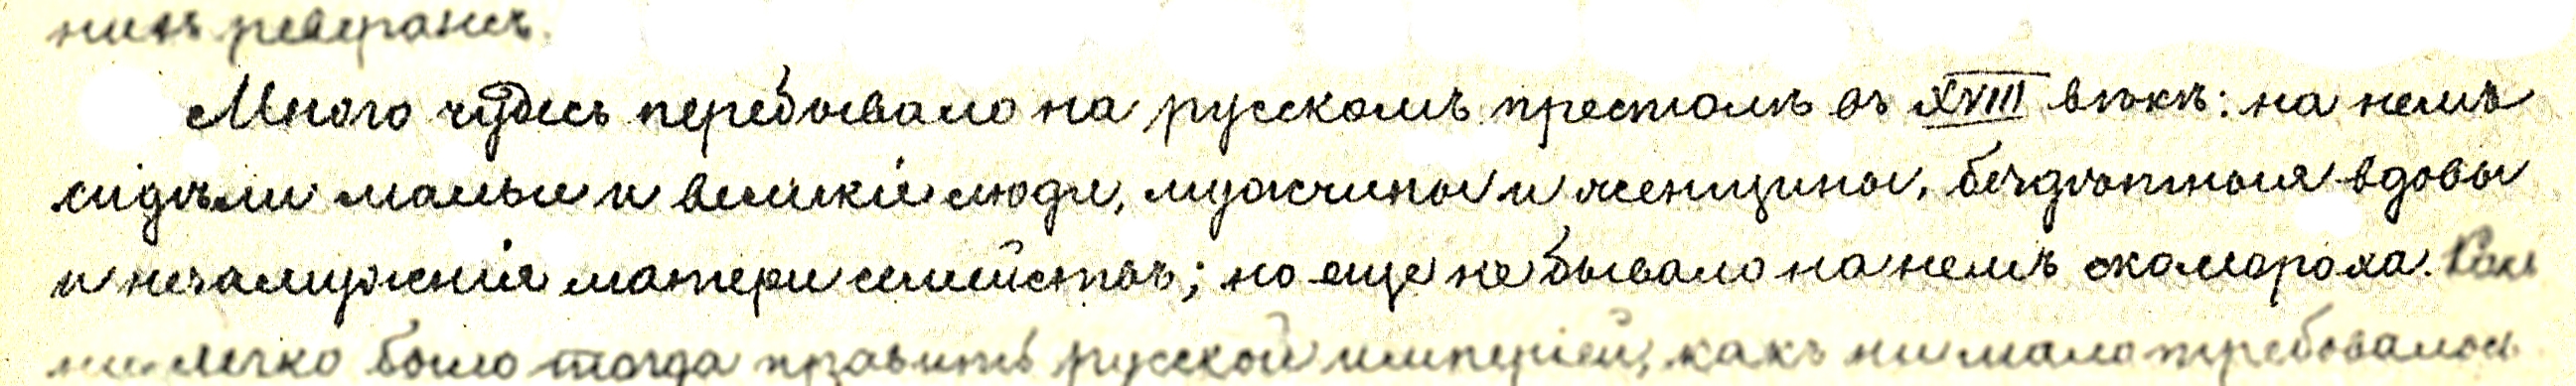 нилъ реверансъ.
Много чудесъ перебывало на русскомъ престолѣ въ XVIII вѣкѣ: на немъ
сидѣли малые и великіе люди, мужчины и женщины, бездѣтныя вдовы
и незамужнія матери семействъ; но еще не бывало на немъ скомороха. Какъ
ни легко было тогда править русской имперіей, какъ ни мало требовалось